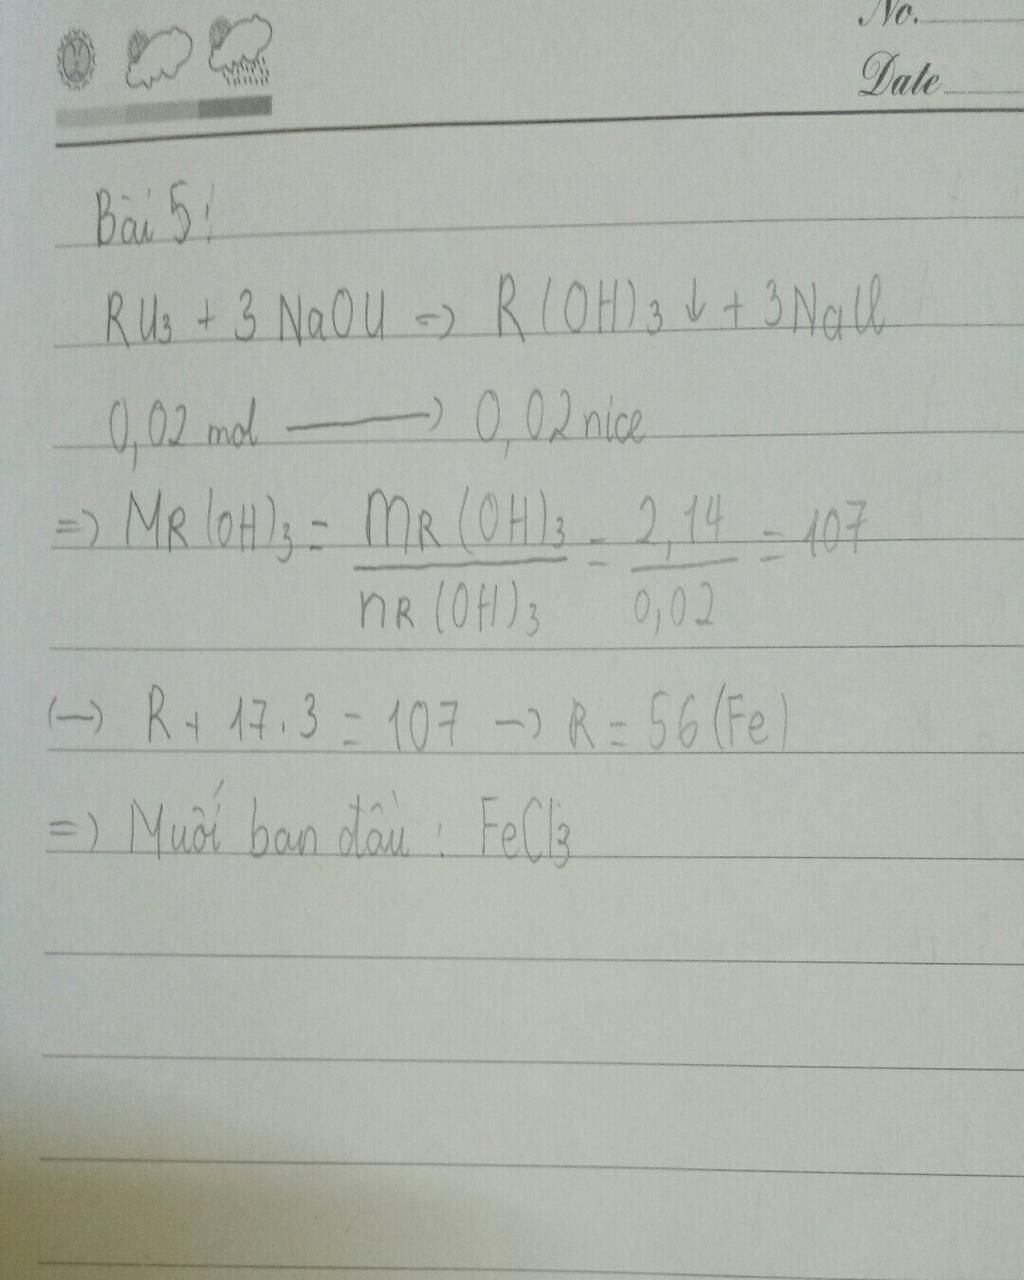 No.
Date
Bài 5:
RCl3 + 3 NaOH => R(OH)3 ↓ + 3 NaCl
0,02 mol → 0,02 nice
=> MR(OH)3 = mR(OH)3 / nR(OH)3 = 2,14 / 0,02 = 107
(→) R + 17.3 = 107 → R = 56 (Fe)
=> Muối ban đầu : FeCl3